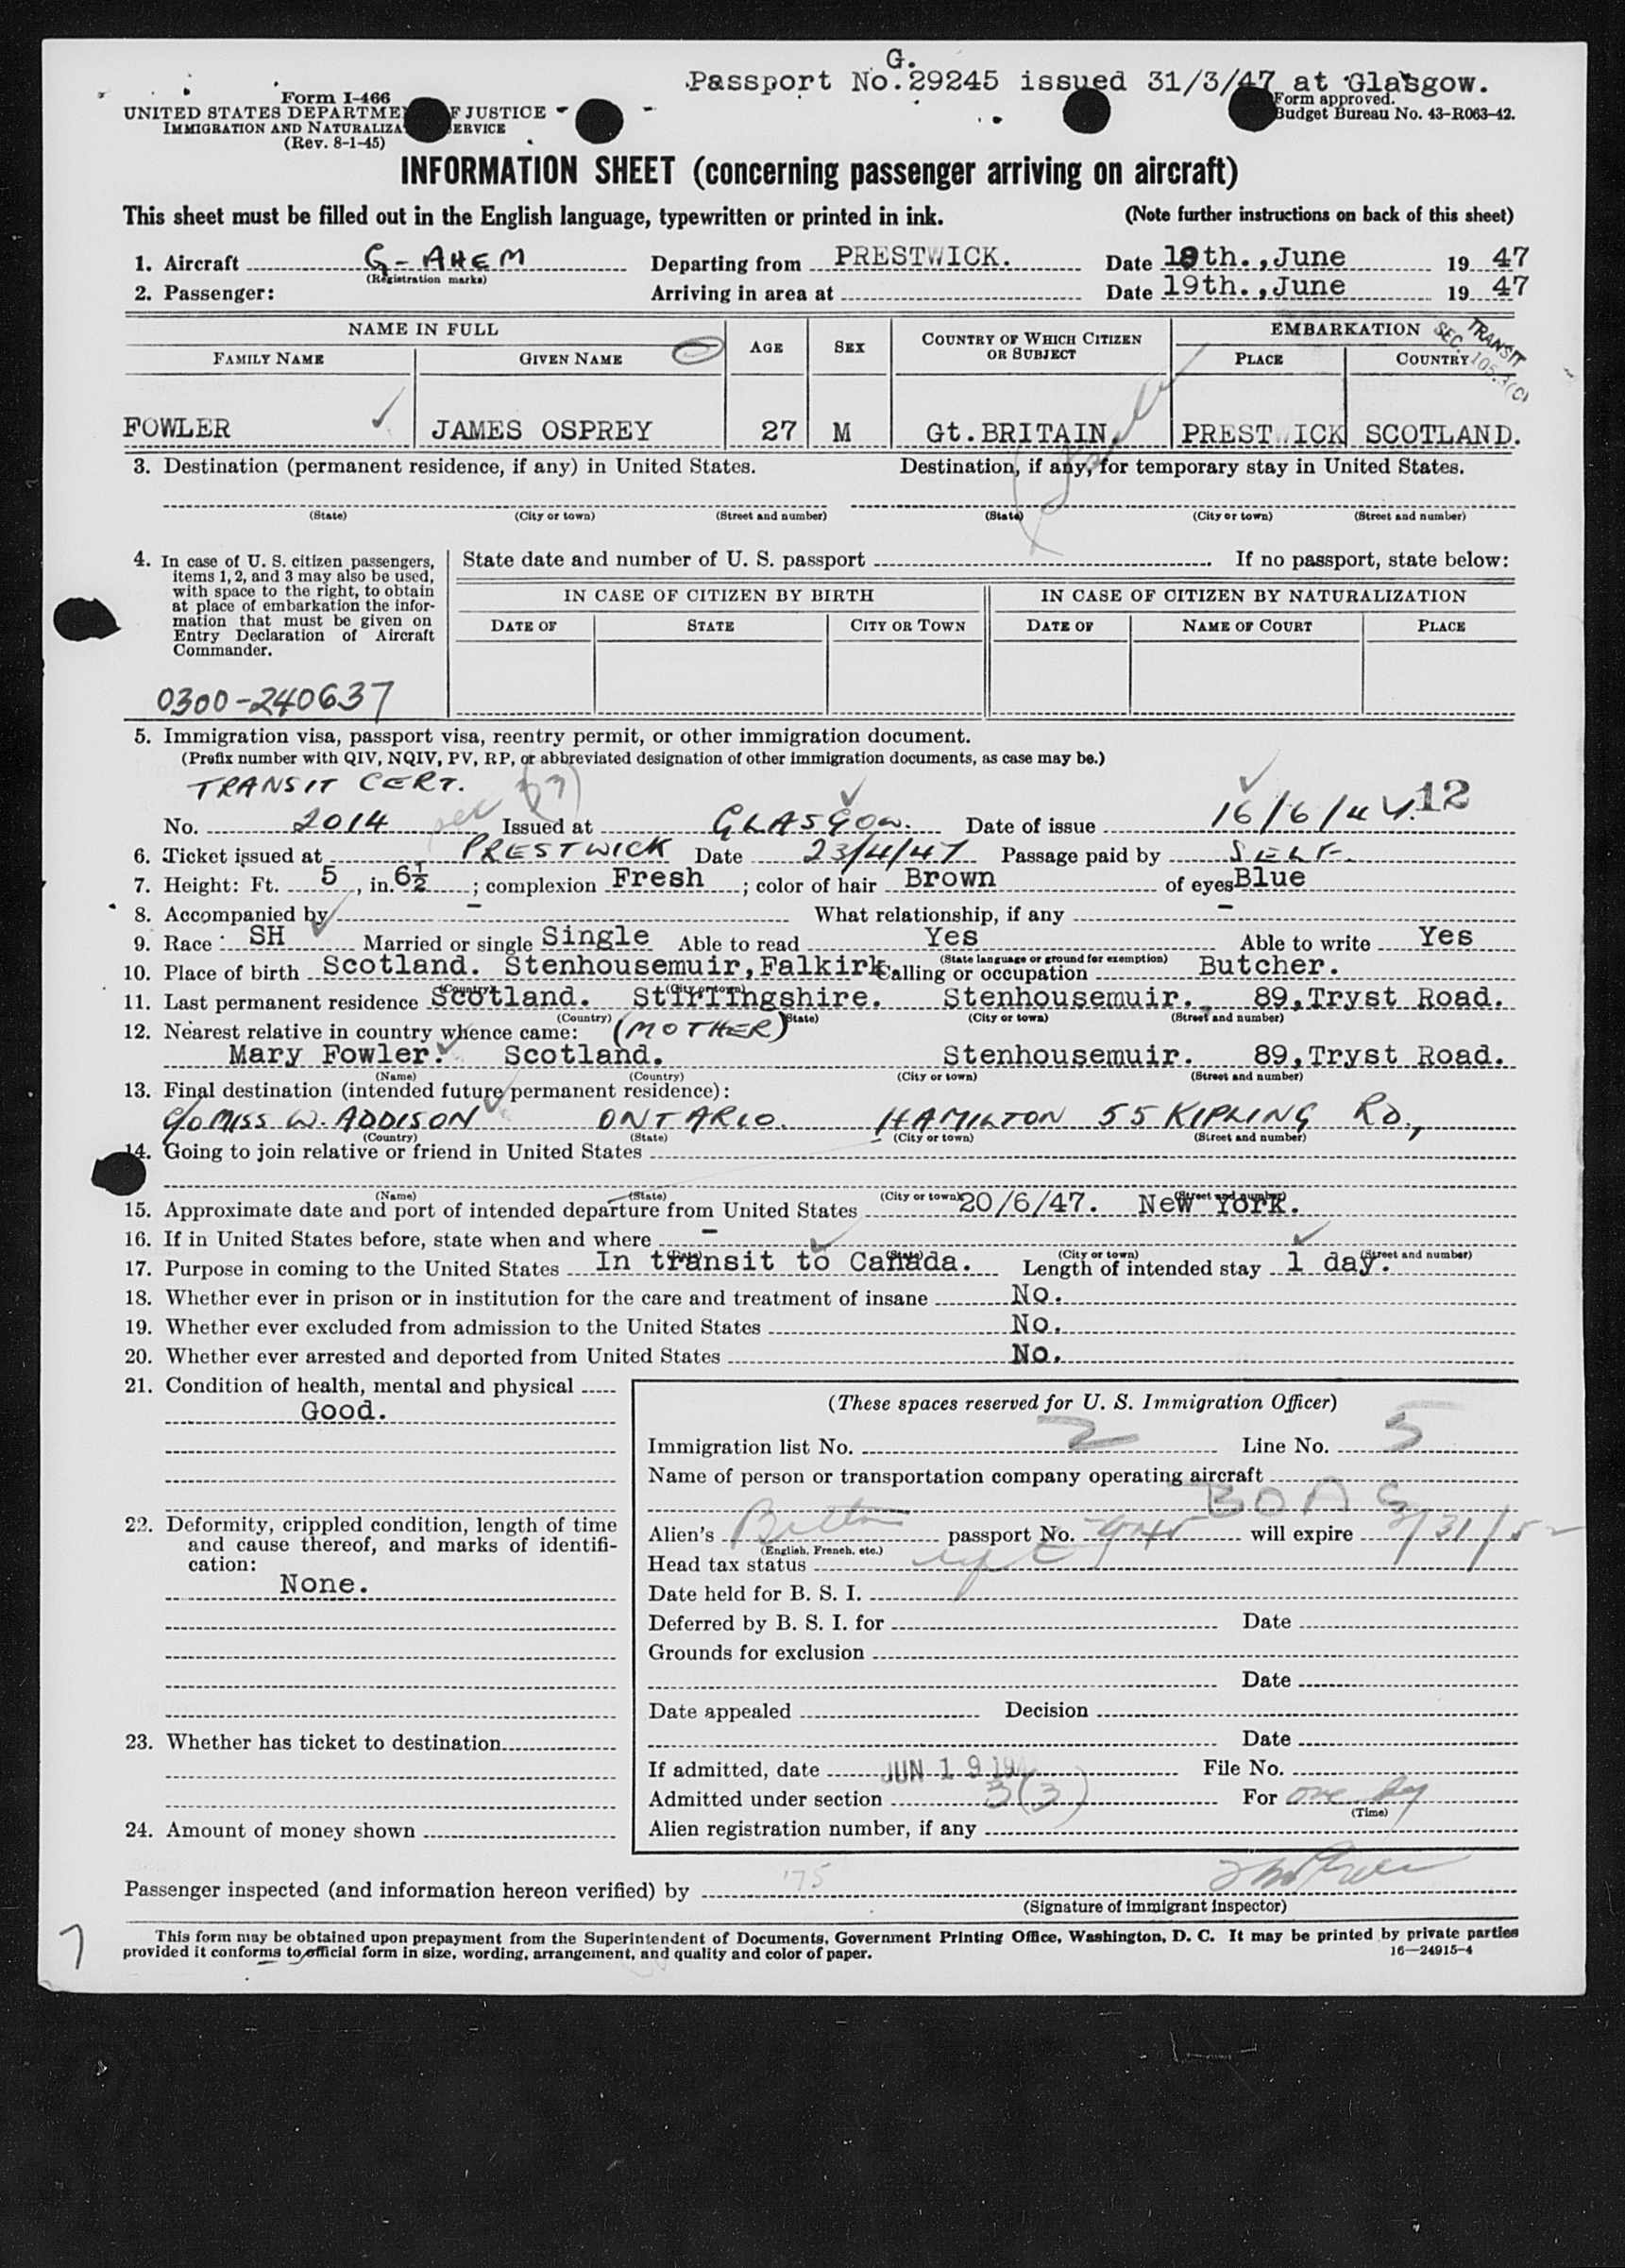 G.
Passport No. 29245 issued 31/3/47 at Glasgow.
Form I-466
UNITED STATES DEPARTME F JUSTICE
IMMIGRATION AND NATURALIZA ERVICE
(Rev. 8-1-45)
Form approved.
Budget Bureau No. 43-R063-42.
INFORMATION SHEET (concerning passenger arriving on aircraft)
This sheet must be filled out in the English language, typewritten or printed in ink. (Note further instructions on back of this sheet)
1. Aircraft G-AHEM Departing from PRESTWICK. Date 18th., June 19 47
(Registration marks)
2. Passenger: Arriving in area at Date 19th., June 19 47
NAME IN FULL AGE SEX COUNTRY OF WHICH CITIZEN OR SUBJECT EMBARKATION
FAMILY NAME GIVEN NAME PLACE COUNTRY
TRANSIT
SEC. 105.3(C)
FOWLER JAMES OSPREY 27 M Gt. BRITAIN. PREST ICK SCOTLAND.
3. Destination (permanent residence, if any) in United States. Destination, if any, for temporary stay in United States.
(State) (City or town) (Street and number) (State) (City or town) (Street and number)
4. In case of U. S. citizen passengers,
items 1, 2, and 3 may also be used,
with space to the right, to obtain
at place of embarkation the infor-
mation that must be given on
Entry Declaration of Aircraft
Commander.
State date and number of U. S. passport If no passport, state below:
IN CASE OF CITIZEN BY BIRTH IN CASE OF CITIZEN BY NATURALIZATION
DATE OF STATE CITY OR TOWN DATE OF NAME OF COURT PLACE
0300-240637
5. Immigration visa, passport visa, reentry permit, or other immigration document.
(Prefix number with QIV, NQIV, PV, RP, or abbreviated designation of other immigration documents, as case may be.)
TRANSIT CERT.
12
No. 2014 Issued at GLASGOW. Date of issue 16/6/47.
6. Ticket issued at PRESTWICK Date 23/4/47 Passage paid by SELF.
7. Height: Ft. 5, in. 6½; complexion Fresh; color of hair Brown of eyes Blue
8. Accompanied by - What relationship, if any -
9. Race SH Married or single Single Able to read Yes Able to write Yes
(State language or ground for exemption)
10. Place of birth Scotland. Stenhousemuir, Falkirk Calling or occupation Butcher.
(Country) (City or town)
11. Last permanent residence Scotland. Stirlingshire. Stenhousemuir. 89, Tryst Road.
(Country) (State) (City or town) (Street and number)
12. Nearest relative in country whence came: (MOTHER)
Mary Fowler. Scotland. Stenhousemuir. 89, Tryst Road.
(Name) (Country) (City or town) (Street and number)
13. Final destination (intended future permanent residence):
C/O MISS W. ADDISON ONTARIO. HAMILTON 55 KIPLING RD.,
(Country) (State) (City or town) (Street and number)
14. Going to join relative or friend in United States
(Name) (State) (City or town) (Street and number)
15. Approximate date and port of intended departure from United States 20/6/47. New York.
16. If in United States before, state when and where -
(Date) (State) (City or town) (Street and number)
17. Purpose in coming to the United States In transit to Canada. Length of intended stay 1 day.
18. Whether ever in prison or in institution for the care and treatment of insane No.
19. Whether ever excluded from admission to the United States No.
20. Whether ever arrested and deported from United States No.
21. Condition of health, mental and physical
Good.
22. Deformity, crippled condition, length of time
and cause thereof, and marks of identifi-
cation:
None.
23. Whether has ticket to destination
24. Amount of money shown
(These spaces reserved for U. S. Immigration Officer)
Immigration list No. 2 Line No. 5
Name of person or transportation company operating aircraft
BOAC
Alien's passport No. will expire 3/31/52
(English, French, etc.)
Head tax status
Date held for B. S. I.
Deferred by B. S. I. for Date
Grounds for exclusion
Date
Date appealed Decision
Date
If admitted, date JUN 19 19 File No.
Admitted under section 3(3) For one day
(Time)
Alien registration number, if any
75
Passenger inspected (and information hereon verified) by
(Signature of immigrant inspector)
7
This form may be obtained upon prepayment from the Superintendent of Documents, Government Printing Office, Washington, D. C. It may be printed by private parties
provided it conforms to official form in size, wording, arrangement, and quality and color of paper. 16—24915-4